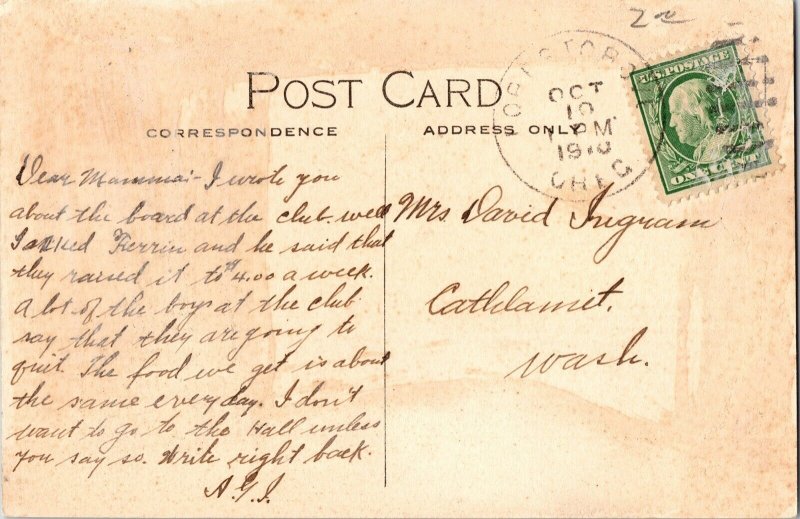 2 00
POST CARD
CORRESPONDENCE
ADDRESS ONLY
OCT
10
PM
1910
OREG
U.S. POSTAGE
ONE CENT
Dear Mamma:- I wrote you
about the board at the club. well
I asked Ferrin and he said that
they raised it to $4.00 a week.
A lot of the boys at the club
say that they are going to
quit. The food we get is about
the same every day. I don't
want to go to the Hall unless
you say so. Write right back.
A.G.I.
Mrs. David Ingram
Cathlamet,
Wash.